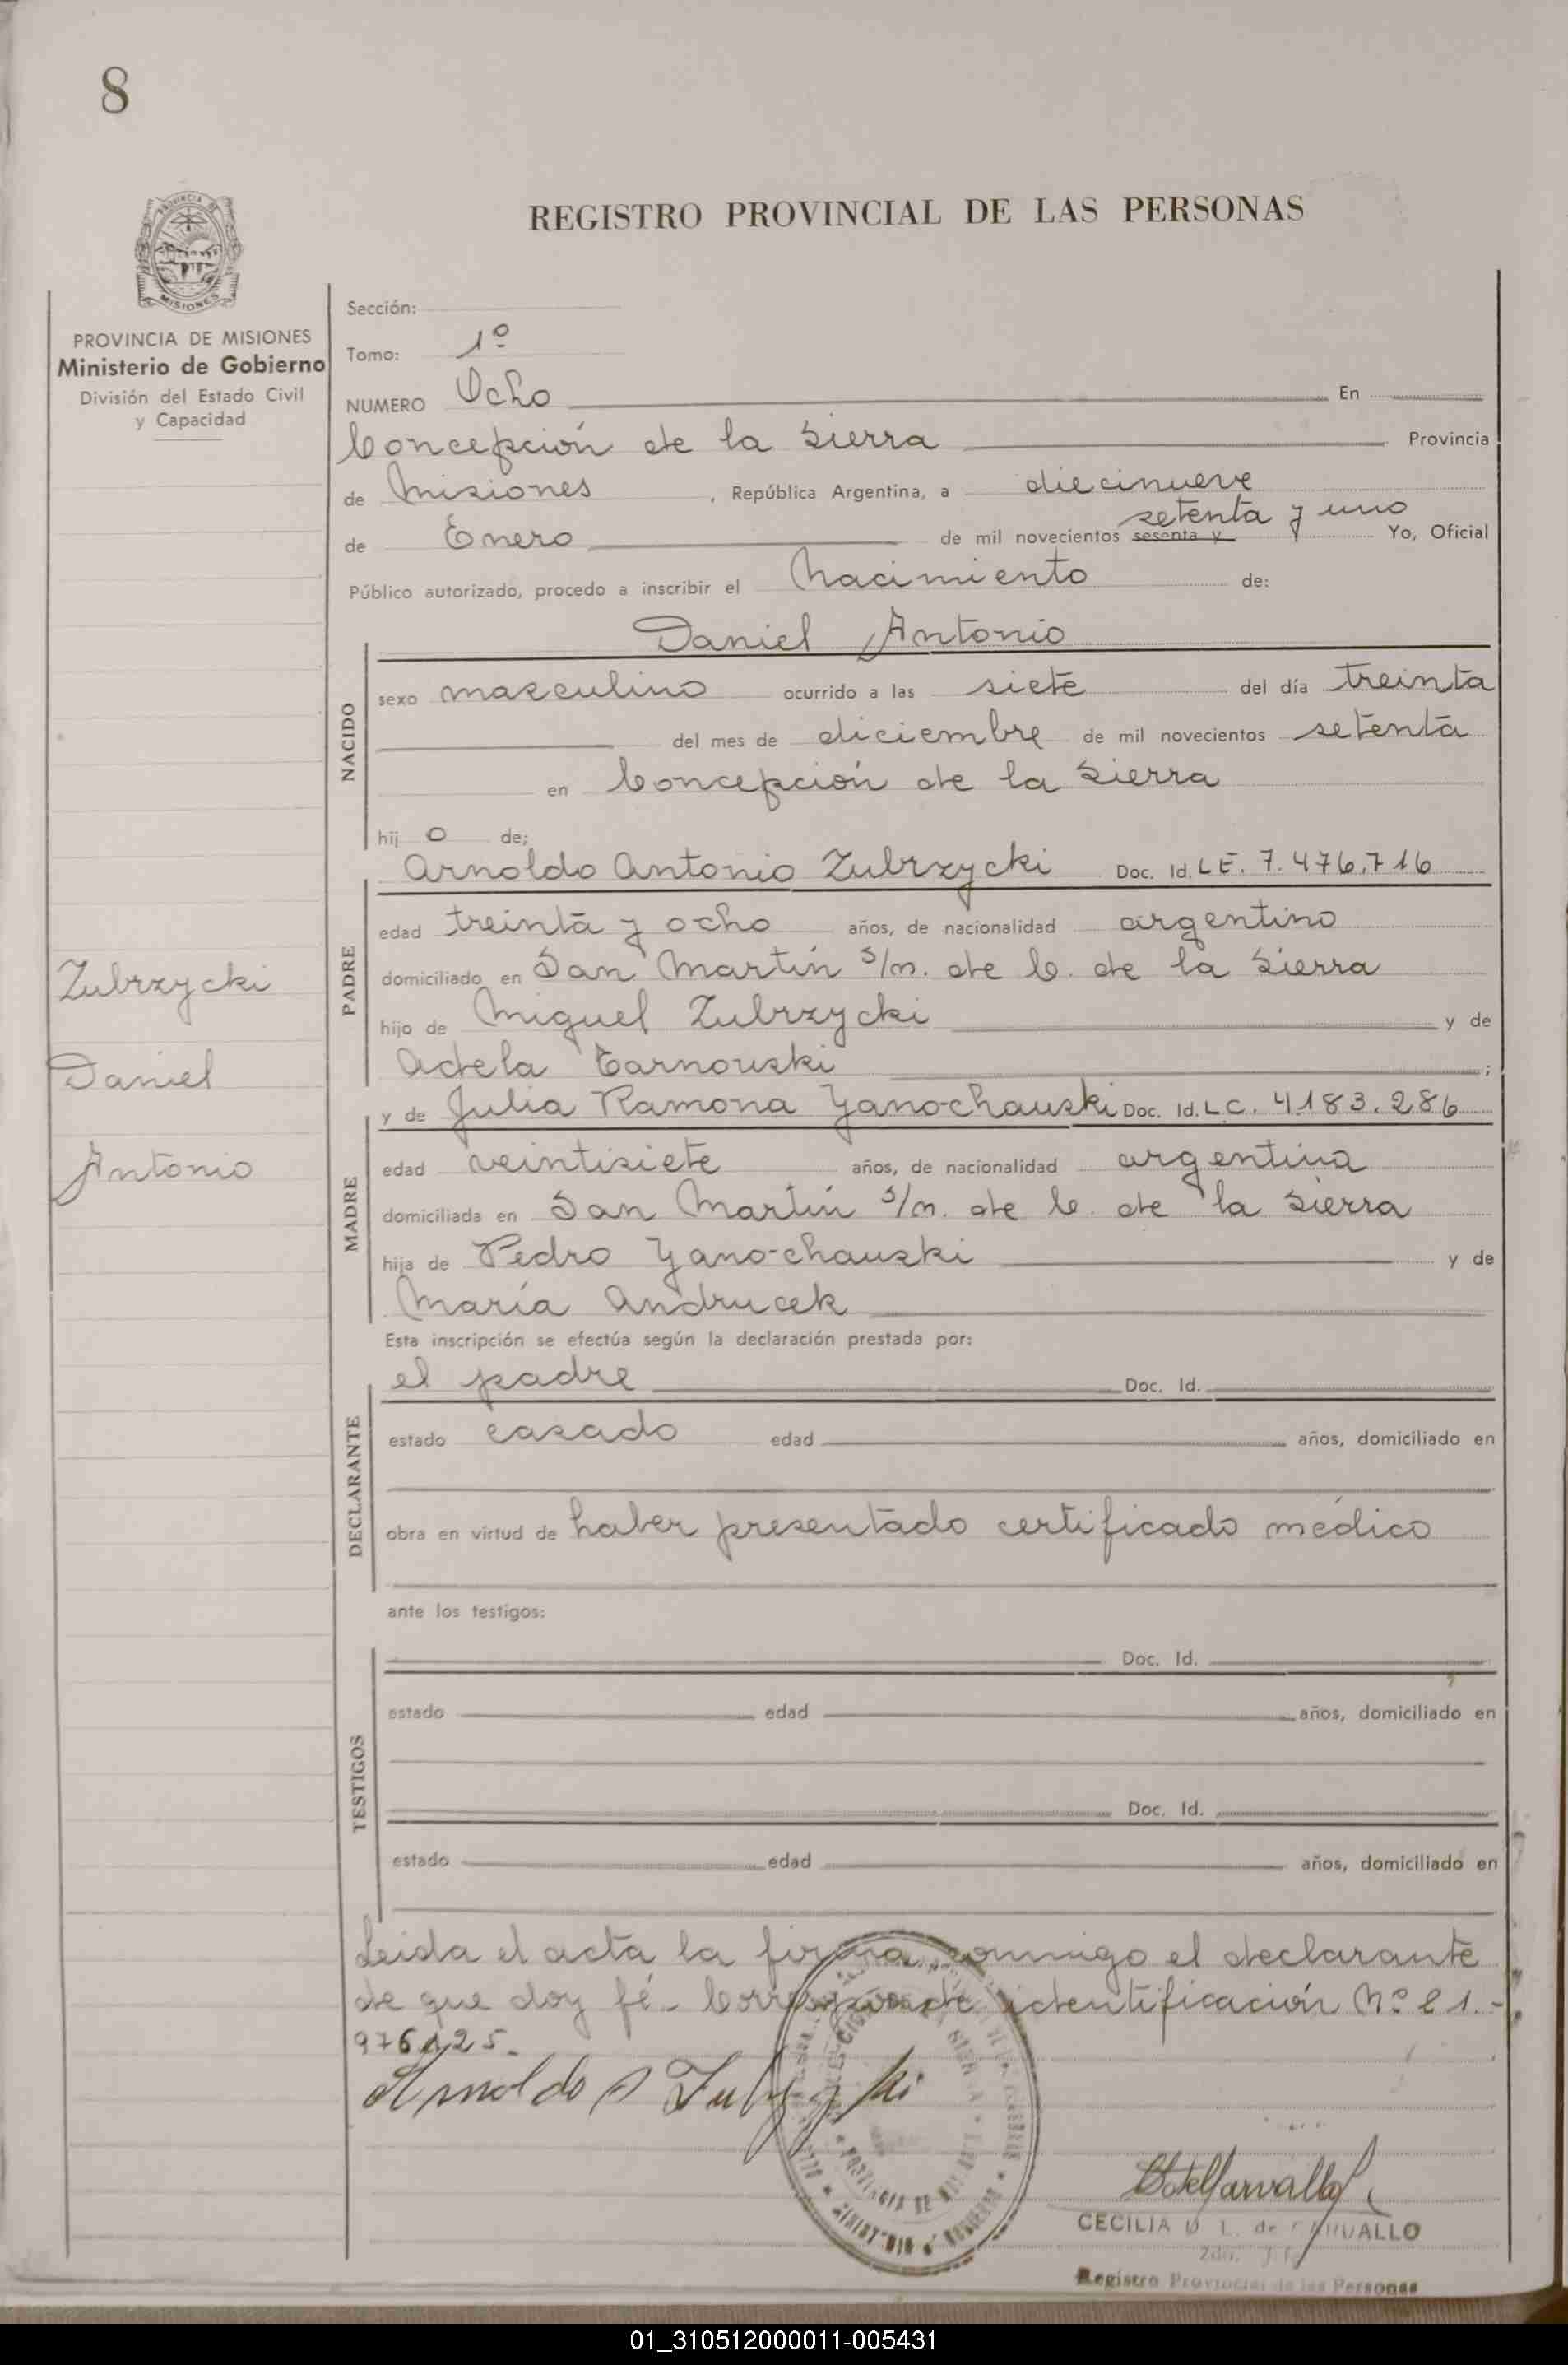 8
REGISTRO PROVINCIAL DE LAS PERSONAS
PROVINCIA DE
MISIONES
PROVINCIA DE MISIONES
Ministerio de Gobierno
División del Estado Civil
y Capacidad
Zubrzycki
Daniel
Antonio
Sección:
Tomo: 1º
NUMERO Ocho En
Concepción de la Sierra Provincia
de Misiones , República Argentina, a diecinueve
de Enero de mil novecientos sesenta y setenta y uno Yo, Oficial
Público autorizado, procedo a inscribir el Nacimiento de:
NACIDO
Daniel Antonio
sexo masculino ocurrido a las siete del día treinta
del mes de diciembre de mil novecientos setenta
en Concepción de la Sierra
hij o de;
PADRE
Arnoldo Antonio Zubrzycki Doc. Id. L E. 7.476.716
edad treinta y ocho años, de nacionalidad argentino
domiciliado en San Martín s/n. de C. de la Sierra
hijo de Miguel Zubrzycki y de
Adela Tarnouski ;
MADRE
y de Julia Ramona Yanochauski Doc. Id. L C. 4.183.286
edad veintisiete años, de nacionalidad argentina
domiciliada en San Martín s/n. de C. de la Sierra
hija de Pedro Yano-chauski y de
María Andrucek
Esta inscripción se efectúa según la declaración prestada por:
DECLARANTE
el padre Doc. Id.
estado casado edad años, domiciliado en
obra en virtud de haber presentado certificado médico
ante los testigos:
TESTIGOS
Doc. Id.
estado edad años, domiciliado en
Doc. Id.
estado edad años, domiciliado en
Leida el acta la firma conmigo el declarante
de que doy fé.- Corresponde identificación Nº 21.-
976125.-
Arnoldo A Zubrzycki
CECILIA D. L. de CARVALLO
Registro Provincial de las Personas
01_310512000011-005431